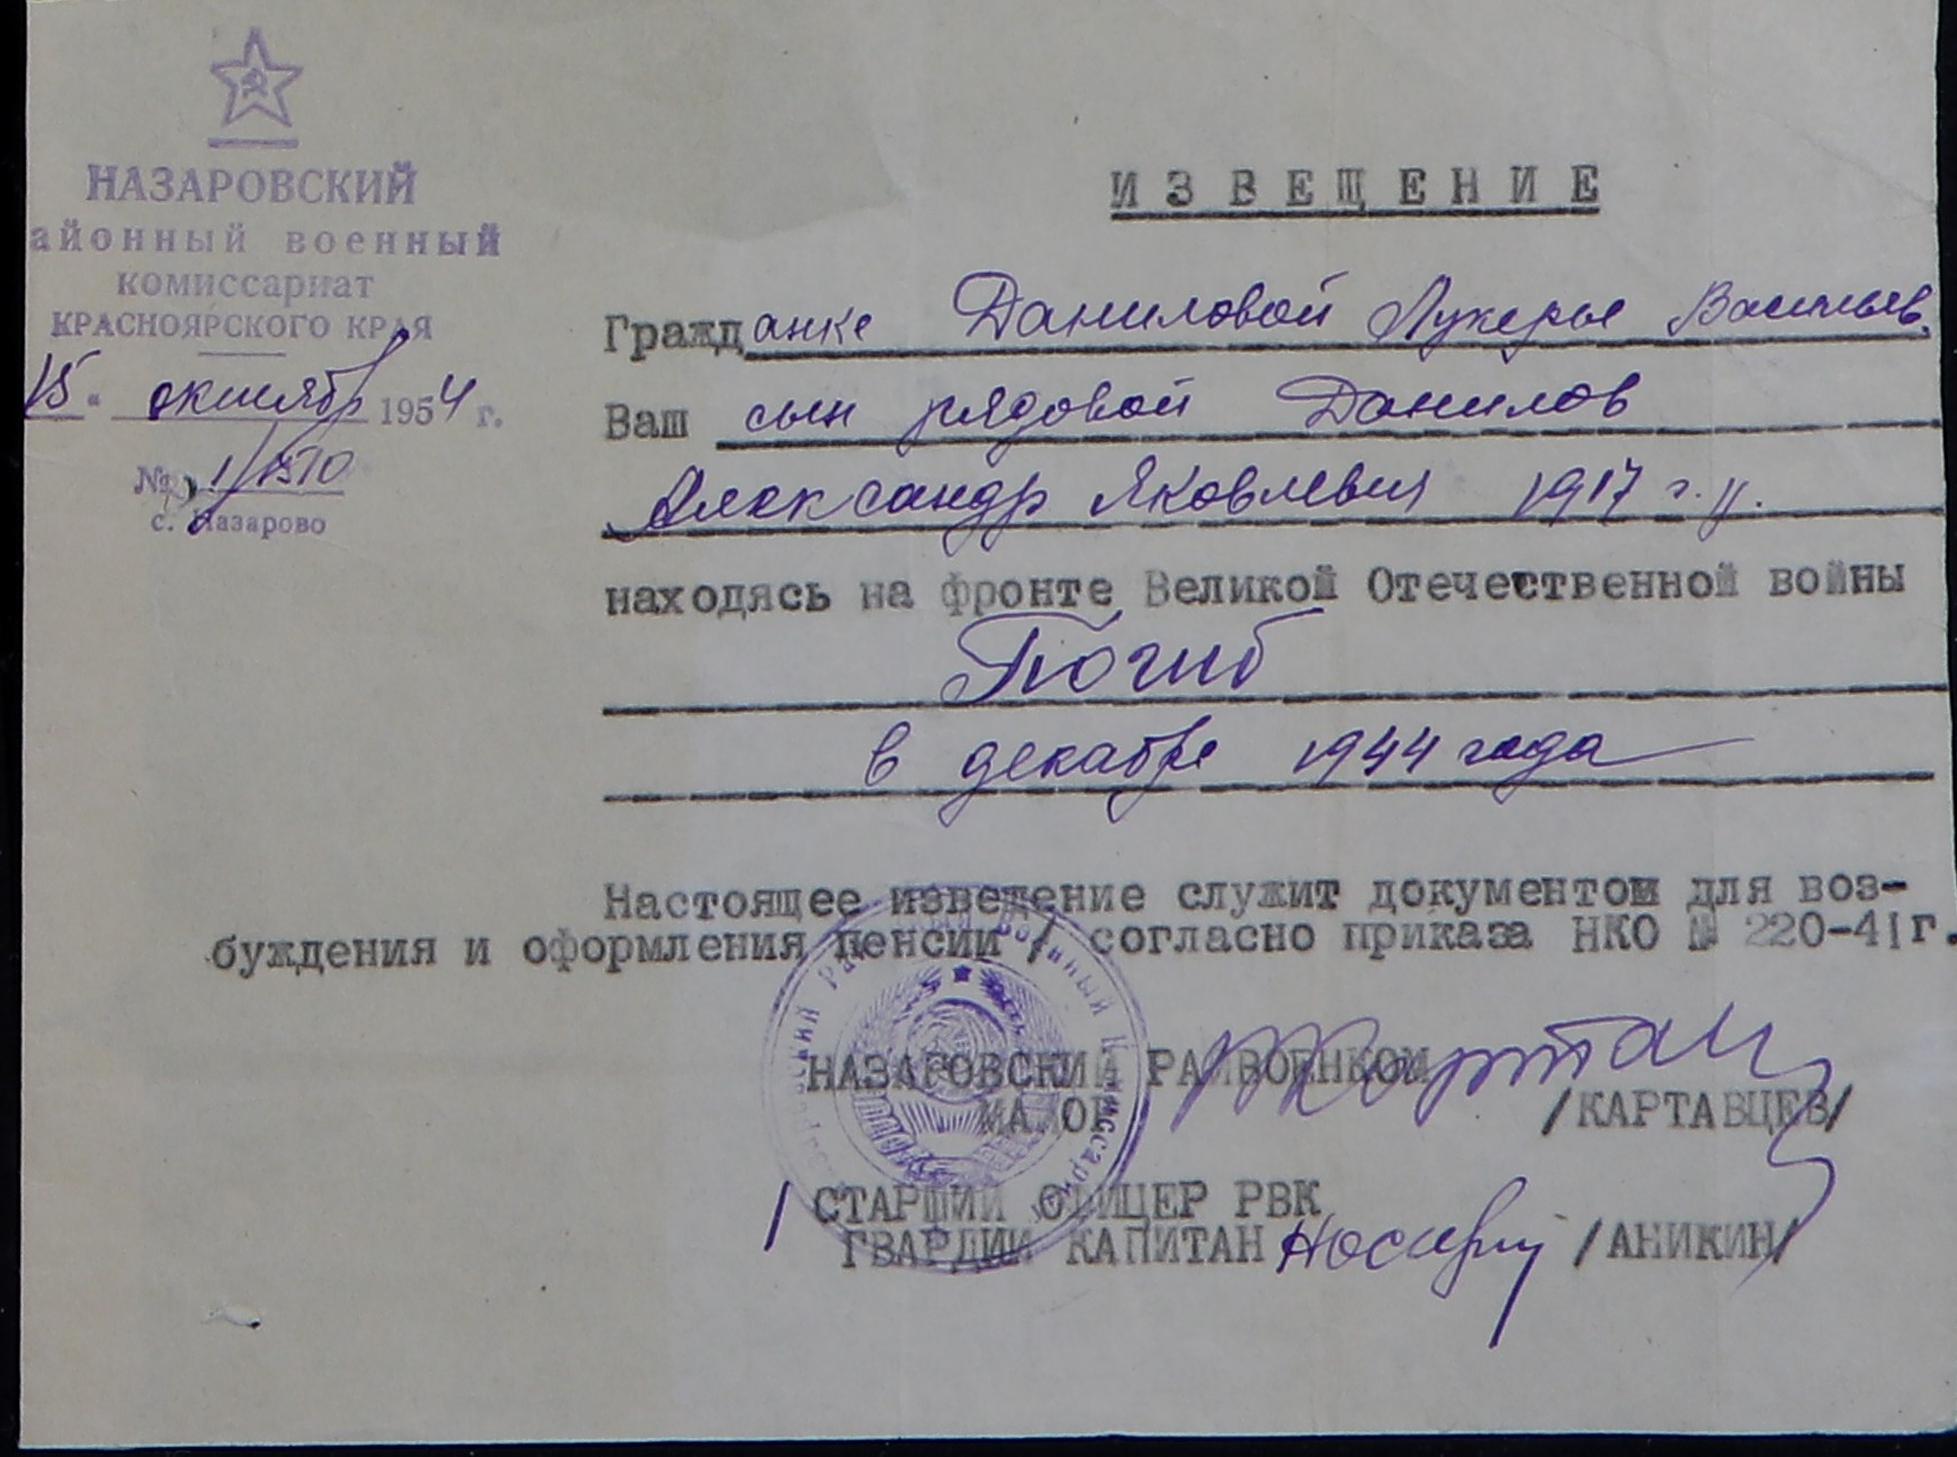 НАЗАРОВСКИЙ
айонный военный
комиссариат
КРАСНОЯРСКОГО КРАЯ
15 " октября 1954 г.
№ 1/1510
с. Назарово
ИЗВЕЩЕНИЕ
Гражданке Даниловой Лукерье Васильев.
Ваш сын рядовой Данилов
Александр Яковлевич 1917 г.р.
находясь на фронте Великой Отечественной войны
Погиб
в декабре 1944 года
Настоящее извещение служит документом для воз-
буждения и оформления пенсии / согласно приказа НКО № 220-41г.
НАЗАРОВСКИЙ РАЙВОЕНКОМ
МАЙОР /КАРТАВЦЕВ/
/ СТАРШИЙ ОФИЦЕР РВК
ГВАРДИИ КАПИТАН /АНИКИН/